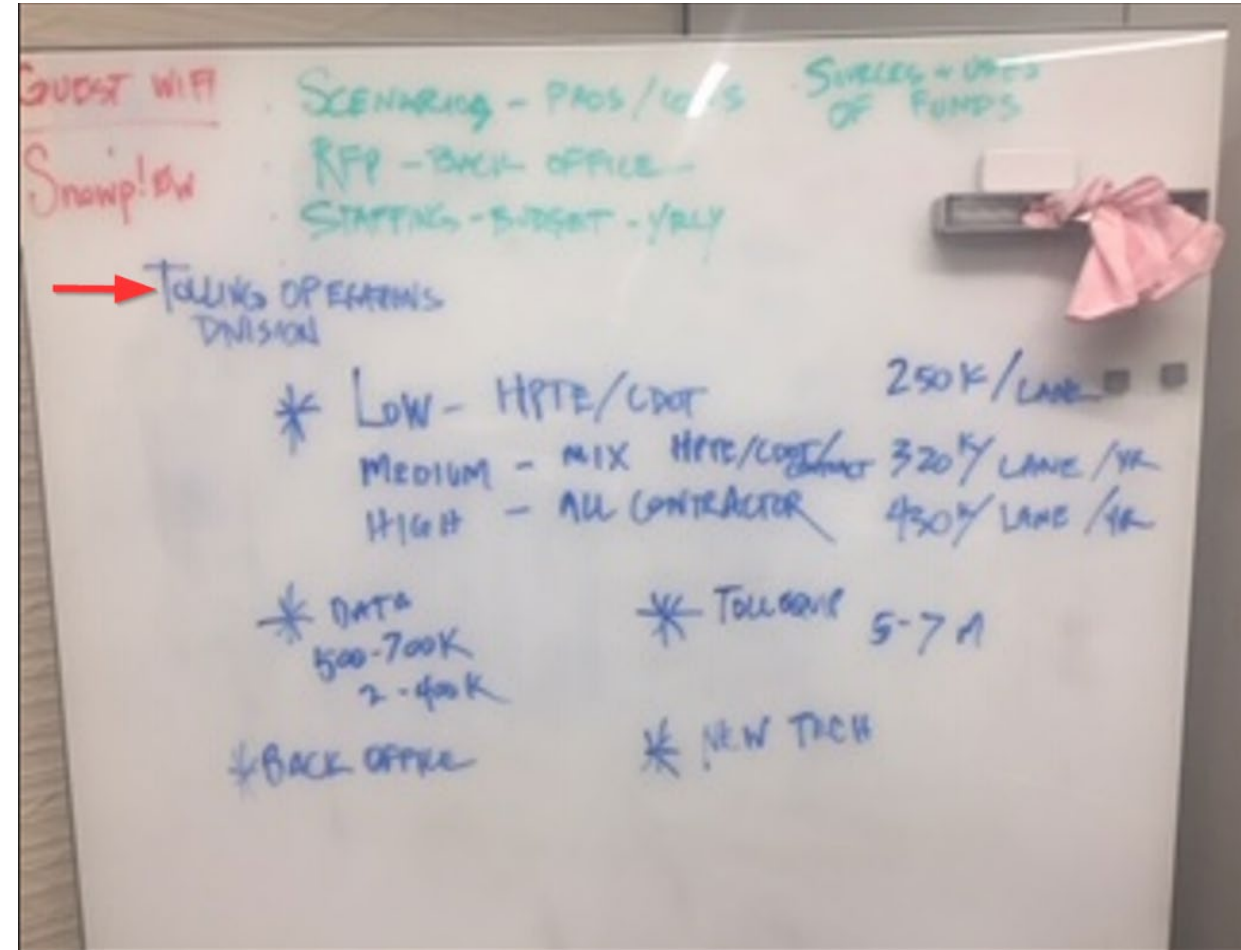 GUEST WIFI
Snowpl0w
SCENARIOS - PROS / CONS
RFP - BACK OFFICE -
STAFFING - BUDGET - YRLY
SOURCES + USES
OF FUNDS
TOLLING OPERATIONS
DIVISION
* LOW - HPTE/CDOT 250K/LANE
MEDIUM - MIX HPTE/CDOT/CONTRACT 320K/LANE/YR
HIGH - ALL CONTRACTOR 430K/LANE/YR
* DATA
500-700K
2-400K
* TOLL EQUIP 5-7M
* BACK OFFICE
* NEW TECH